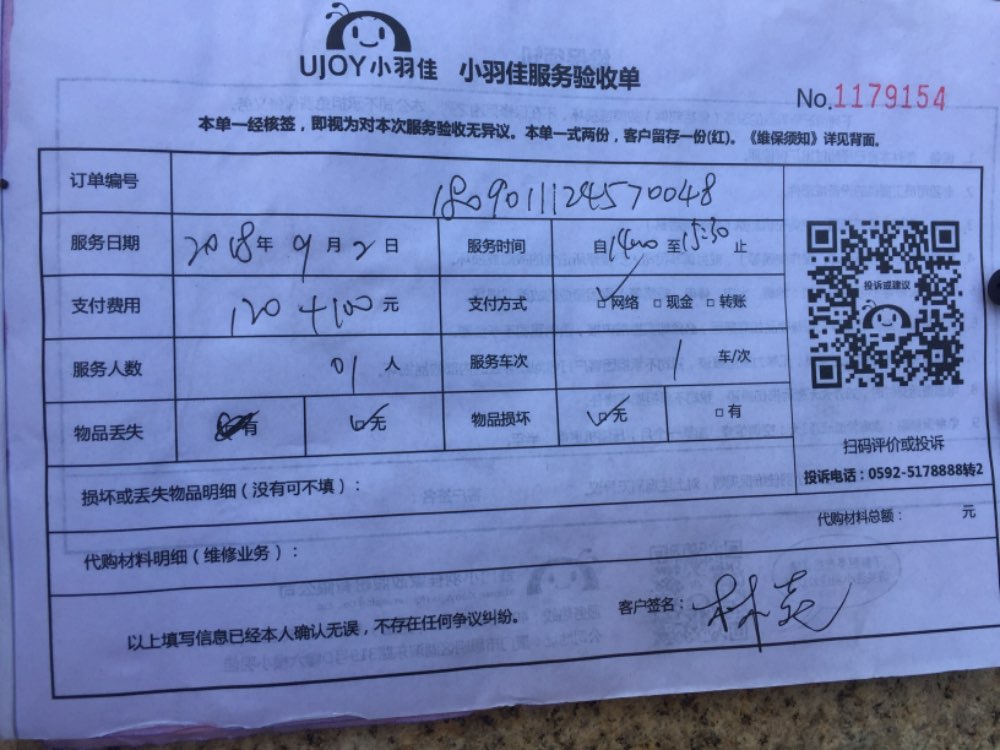 UJOY小羽佳 小羽佳服务验收单
No.1179154
本单一经核签，即视为对本次服务验收无异议。本单一式两份，客户留存一份(红)。《维保须知》详见背面。
订单编号 1809011124570048
服务日期 2018年 9月 2日 服务时间 自14:00至15:30止
支付费用 120+100元 支付方式 □网络 □现金 □转账
投诉或建议
服务人数 01人 服务车次 1 车/次
物品丢失 有 □无 物品损坏 □无 □有
扫码评价或投诉
投诉电话：0592-5178888转2
损坏或丢失物品明细（没有可不填）：
代购材料总额： 元
代购材料明细（维修业务）：
以上填写信息已经本人确认无误，不存在任何争议纠纷。 客户签名：